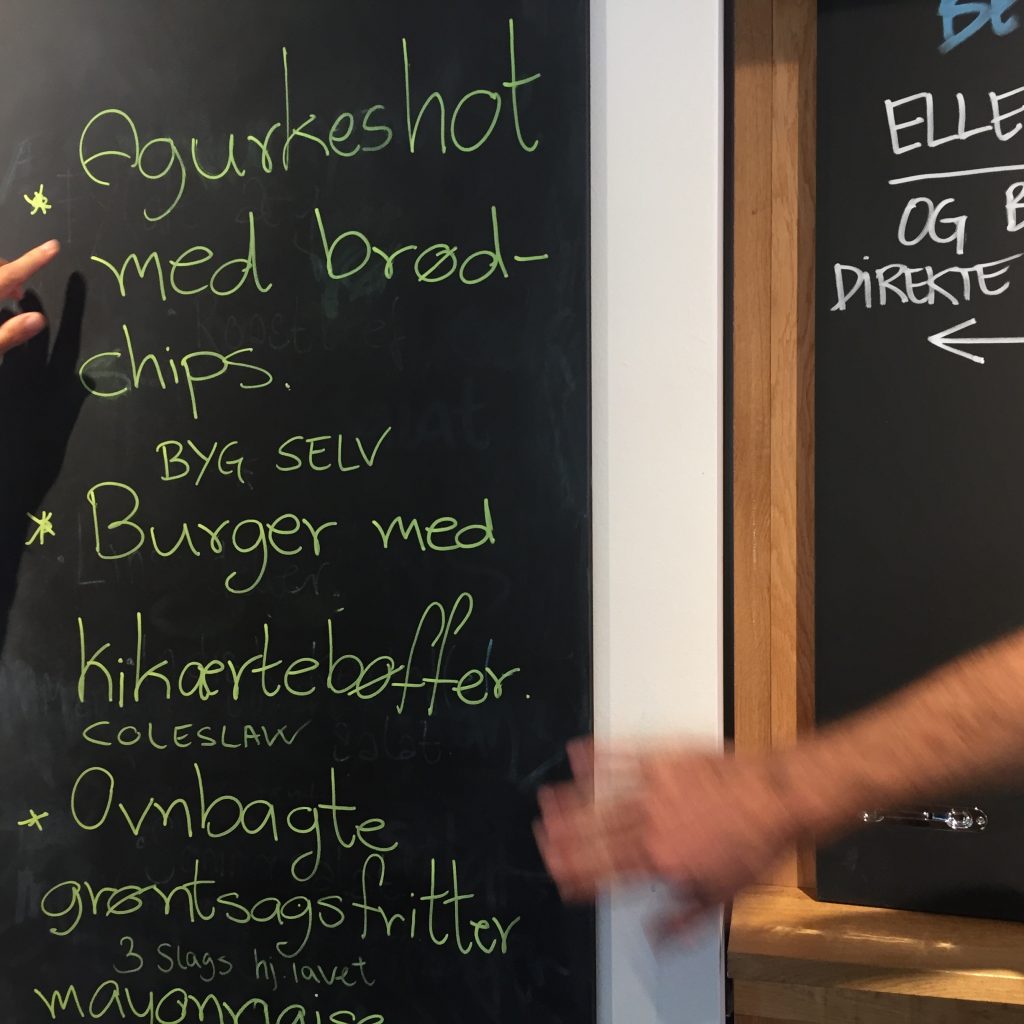 * Agurkeshot
med brød-
chips.
BYG SELV
* Burger med
kikærtebøffer.
COLESLAW
* Ovnbagte
grøntsagsfritter
3 slags hj.lavet
mayonnaise
OG
DIREKTE
←